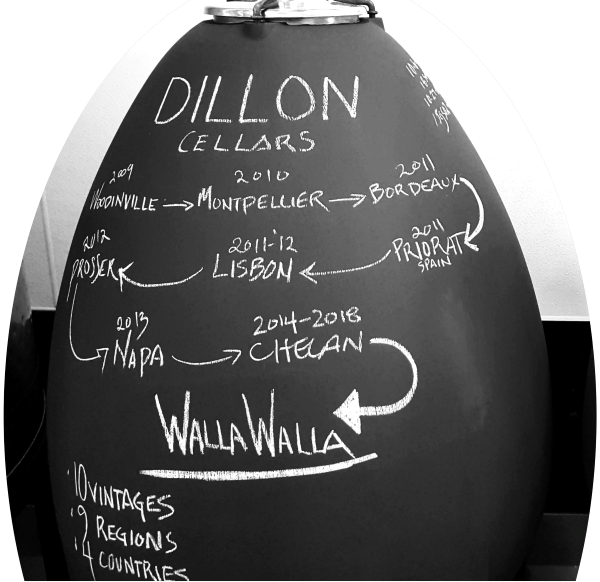 DILLON
CELLARS
2009 2010 2011
WOODINVILLE → MONTPELLIER → BORDEAUX
2012 2011-'12 2011
PROSSER LISBON PRIORAT
SPAIN
2013 2014-2018
NAPA → CHELAN
WALLA WALLA
·10 VINTAGES
·9 REGIONS
·4 COUNTRIES